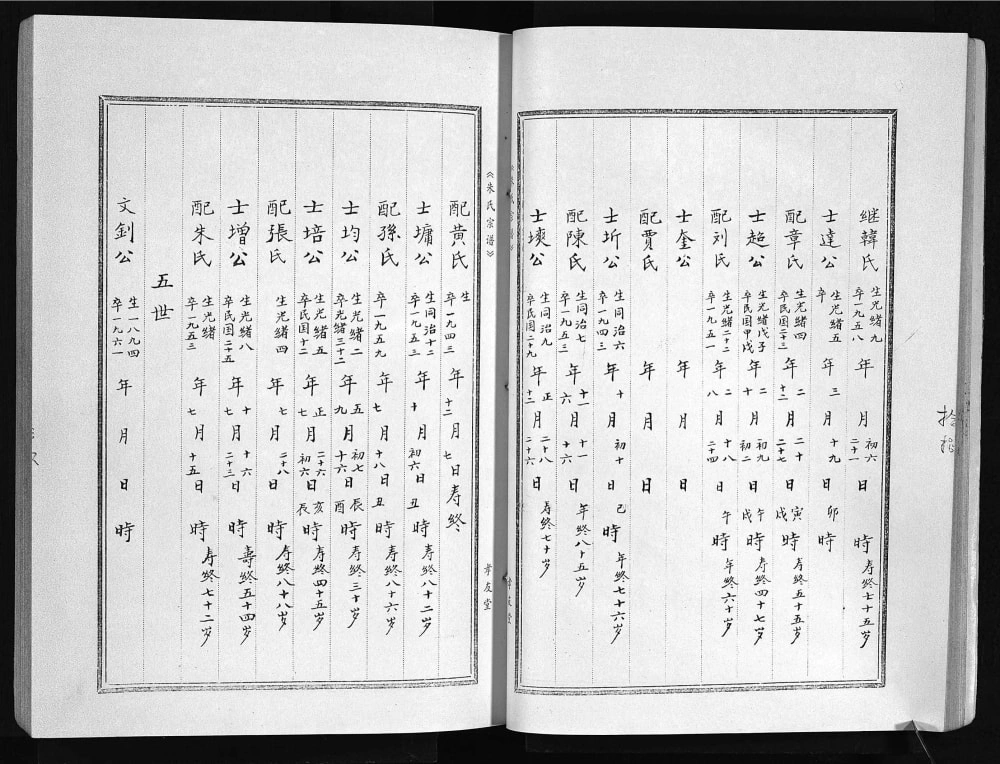 继韓氏 生光緒九 卒一九五八 年 月 初六 二十一 日 時 寿終七十五岁
士達公 生光緒五 卒 年 三 月 十九 日 卯 時
配章氏 生光緒四 卒民国二十三 年 二 十三 月 二十 二十七 日 寅 戌 時 寿終五十五岁
士超公 生光緒戊子 卒民国甲戌 年 二 十 月 初九 初二 日 午 戌 時 寿終四十七岁
配刘氏 生光緒二十二 卒一九五一 年 二 八 月 十八 二十四 日 午 時 年終六十岁
士奎公 年 月 日
配賈氏 年 月 日
士圻公 生同治六 卒一九四三 年 十 月 初十 日 巳 時 年終七十六岁
配陳氏 生同治七 卒一九五三 年 十一 六 月 十一 十六 日 年終八十五岁
士塽公 生同治九 卒民国二十九 年 十二 月 二十八 二十六 日 寿終七十岁
《朱氏宗谱》 孝友堂
《朱氏宗谱》 孝友堂
配黄氏 生 卒一九四三 年 十二 月 七 日 寿終
士墉公 生同治十二 卒一九五三 年 十 月 初六 日 丑 時 寿終八十二岁
配孫氏 卒一九五九 年 七 月 十八 日 丑 時 寿終八十六岁
士均公 生光緒二 卒光緒三十二 年 五 九 月 初七 十六 日 辰 酉 時 寿終三十岁
士培公 生光緒五 卒民国十二 年 正 七 月 二十六 初六 日 亥 辰 時 寿終四十五岁
配張氏 生光緒四 年 七 月 二十八 日 時 寿終八十八岁
士增公 生光緒八 卒民国二十五 年 十 七 月 十六 二十三 日 時 壽終五十四岁
配朱氏 生光緒 卒一九五三 年 七 月 十五 日 時 寿終七十二岁
五世
文釗公 生一八九四 卒一九六一 年 月 日 時